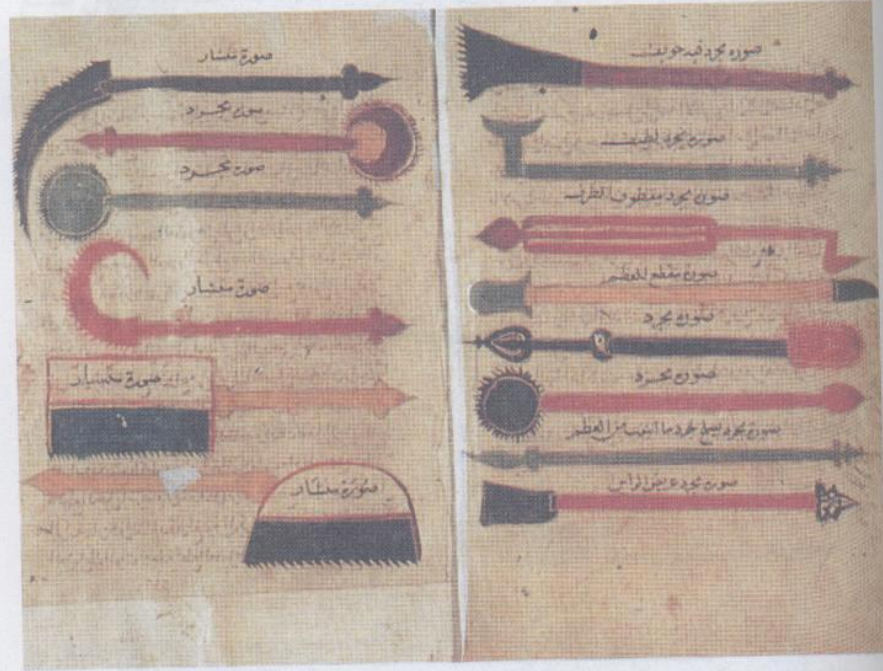 صوره مجرد فيه تجويف
صوره مجرد لطيف
صوره مجرد معطوف الطرف
صورة مقطع للعظم
صوره مجرد
صوره مجرد
صورة مجرد يصلح لجرد ما من العظم
صوره مجرد عريض الراس
صورة منشار
صورة مجرد
صورة مجرد
صورة منشار
صورة منشار
صورة منشار